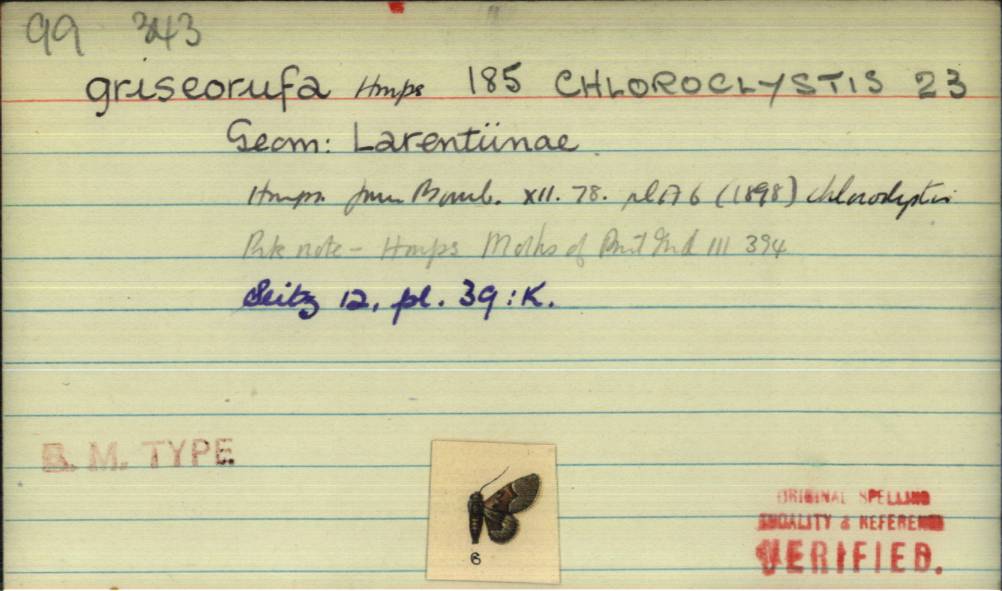 99 343
griseorufa Hmps 185 CHLOROCLYSTIS 23
Geom: Larentiinae
Hmpsn. Journ Bomb. XII. 78. pl A 6 (1898) chloroclystis
note - Hmps Moths of Brit Ind III 394
Seitz 12, pl. 39 : K.
B. M. TYPE.
6
ORIGINAL SPELLING
LOCALITY & REFERENCE
VERIFIED.